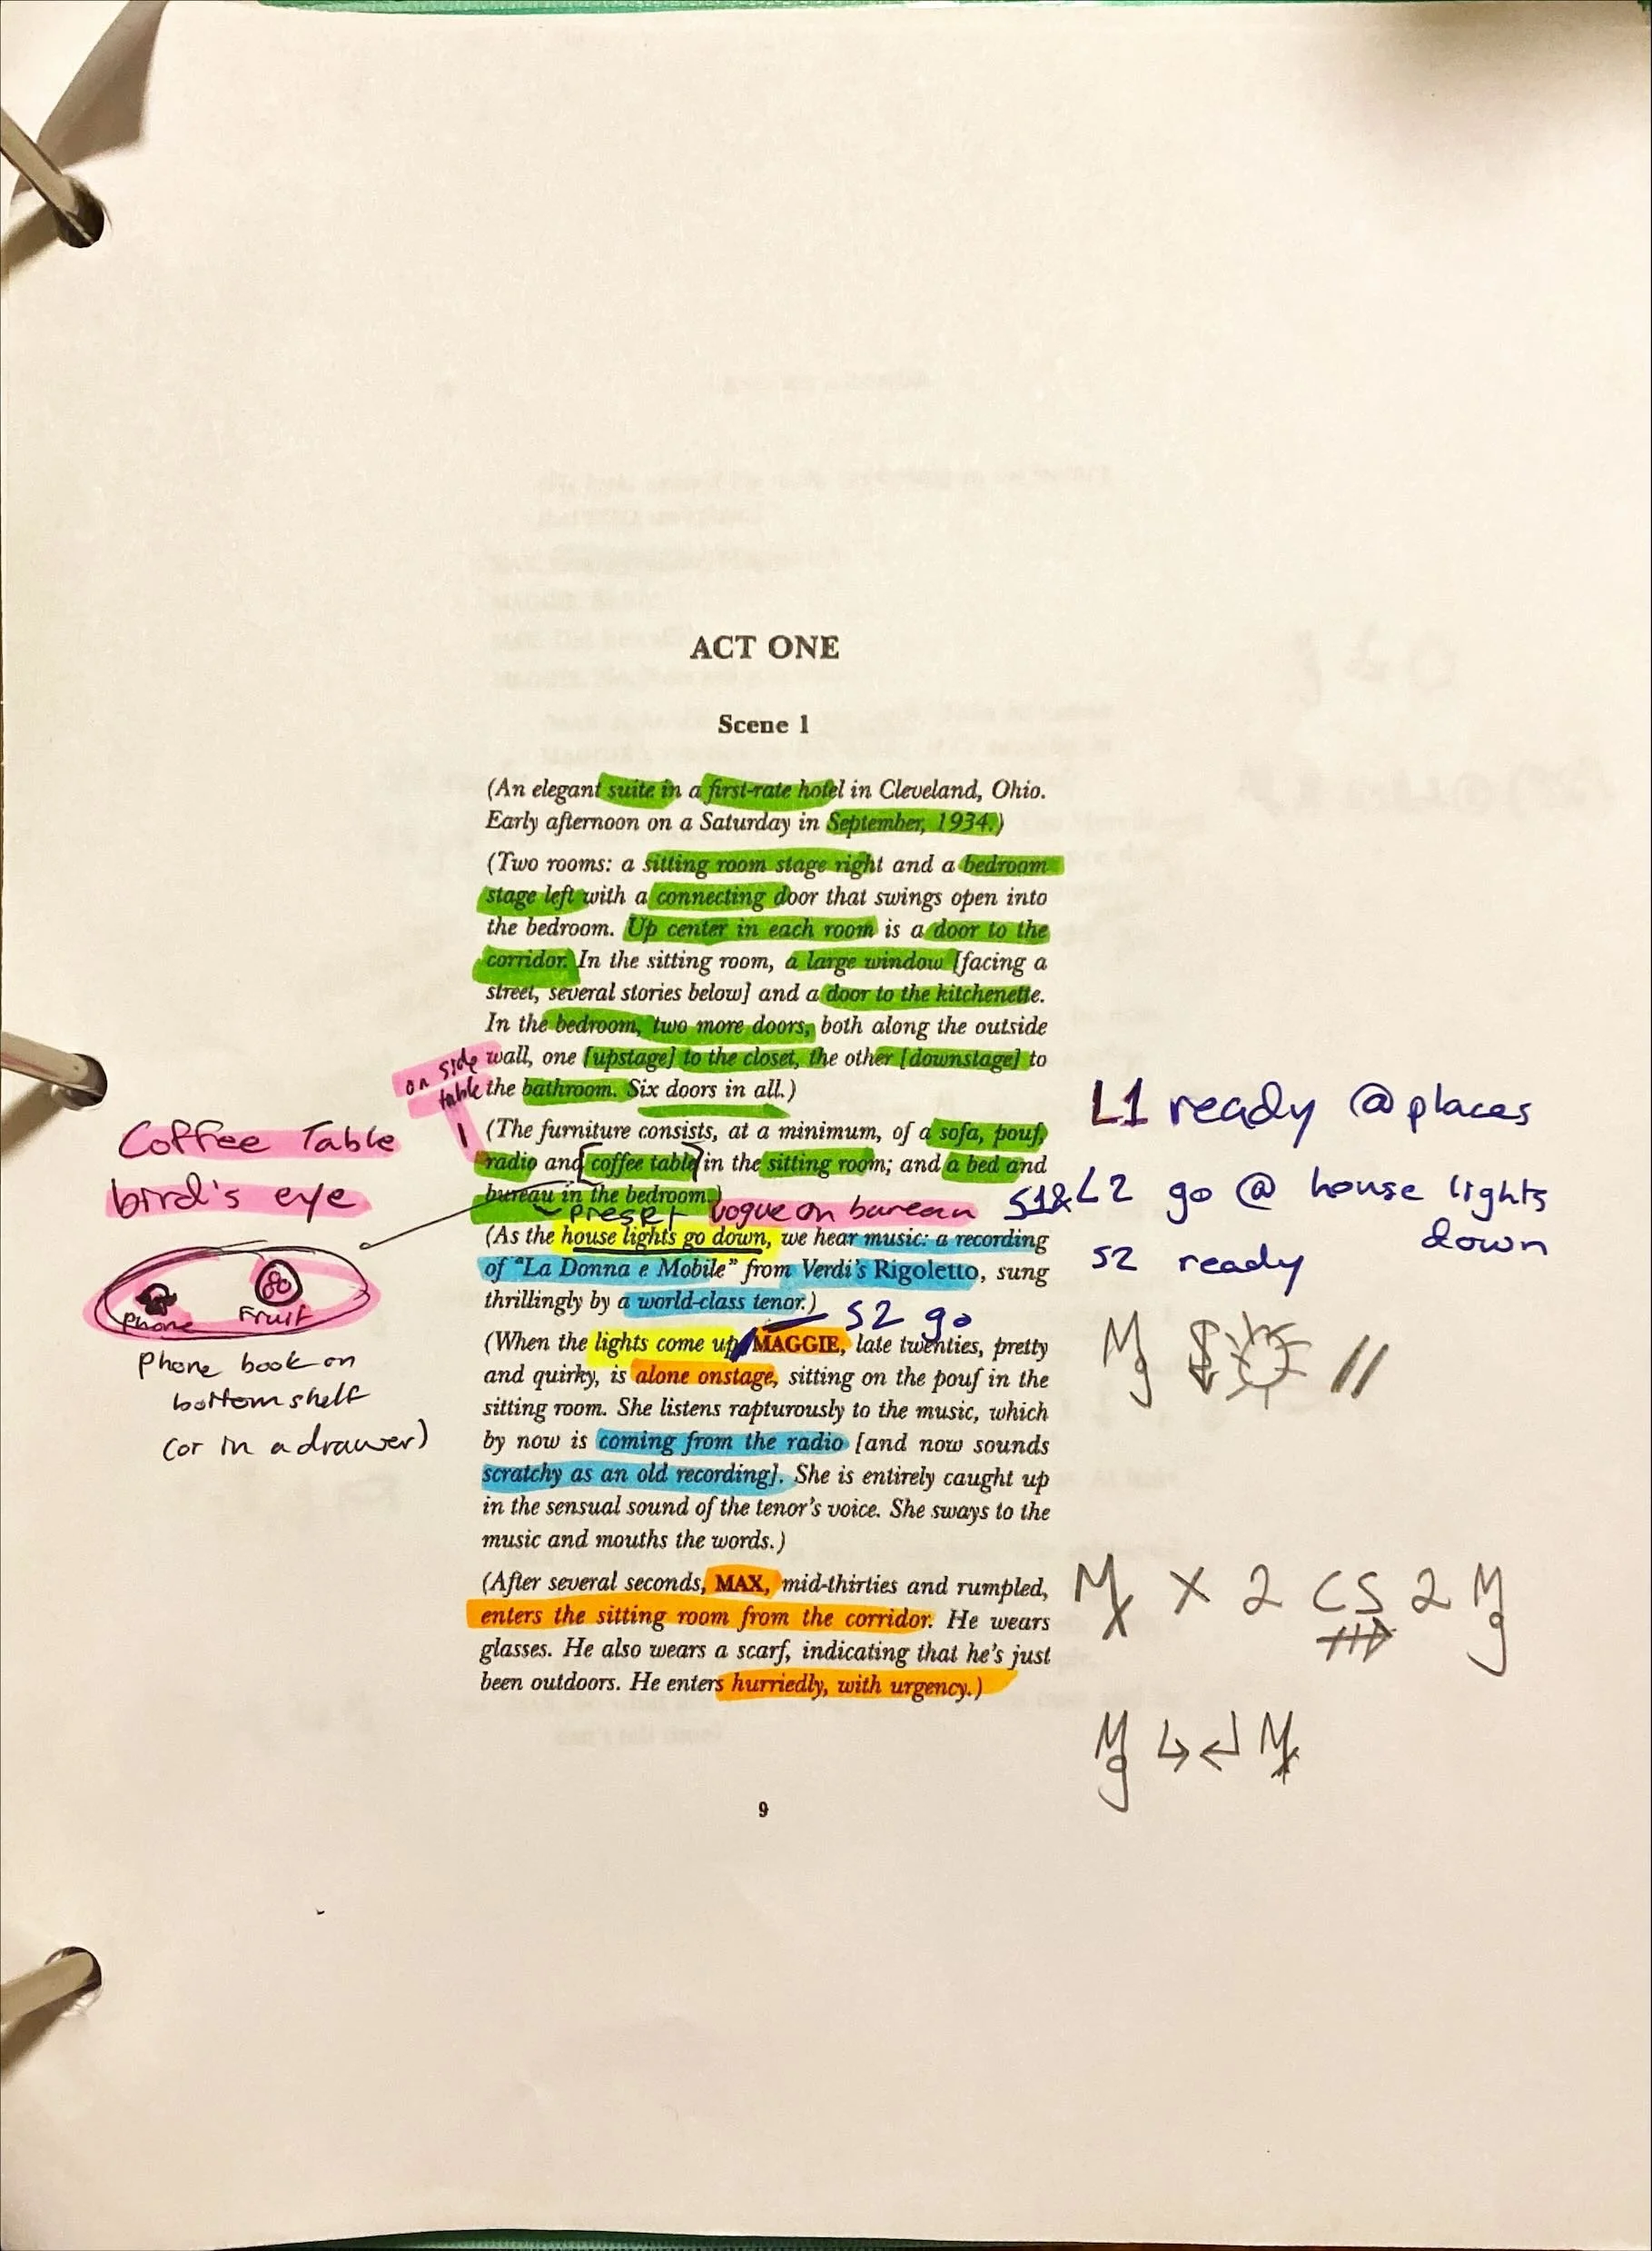 ACT ONE
Scene 1
(An elegant suite in a first-rate hotel in Cleveland, Ohio.
Early afternoon on a Saturday in September, 1934.)
(Two rooms: a sitting room stage right and a bedroom
stage left with a connecting door that swings open into
the bedroom. Up center in each room is a door to the
corridor. In the sitting room, a large window [facing a
street, several stories below] and a door to the kitchenette.
In the bedroom, two more doors, both along the outside
wall, one [upstage] to the closet, the other [downstage] to
the bathroom. Six doors in all.)
on side
table
(The furniture consists, at a minimum, of a sofa, pouf,
radio and coffee table in the sitting room; and a bed and
bureau in the bedroom.)
preset vogue on bureau
(As the house lights go down, we hear music: a recording
of "La Donna e Mobile" from Verdi's Rigoletto, sung
thrillingly by a world-class tenor.)
S2 go
(When the lights come up, MAGGIE, late twenties, pretty
and quirky, is alone onstage, sitting on the pouf in the
sitting room. She listens rapturously to the music, which
by now is coming from the radio [and now sounds
scratchy as an old recording]. She is entirely caught up
in the sensual sound of the tenor's voice. She sways to the
music and mouths the words.)
(After several seconds, MAX, mid-thirties and rumpled,
enters the sitting room from the corridor. He wears
glasses. He also wears a scarf, indicating that he's just
been outdoors. He enters hurriedly, with urgency.)
9
Coffee Table
bird's eye
Phone
Fruit
Phone book on
bottom shelf
(or in a drawer)
L1 ready @ places
S1& L2 go @ house lights
down
S2 ready
Mg
Mx X 2 CS 2 Mg
Mg ↳ ↲ Mx